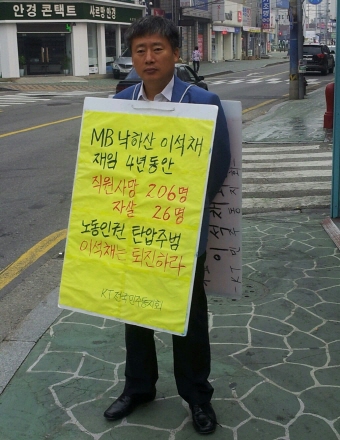 안경 콘택트
샤르망 안경
MB 낙하산 이석채
재임 4년동안
직원사망 206명
자살 26명
노동인권 탄압주범
이석채는 퇴진하라
KT전주민주동지회